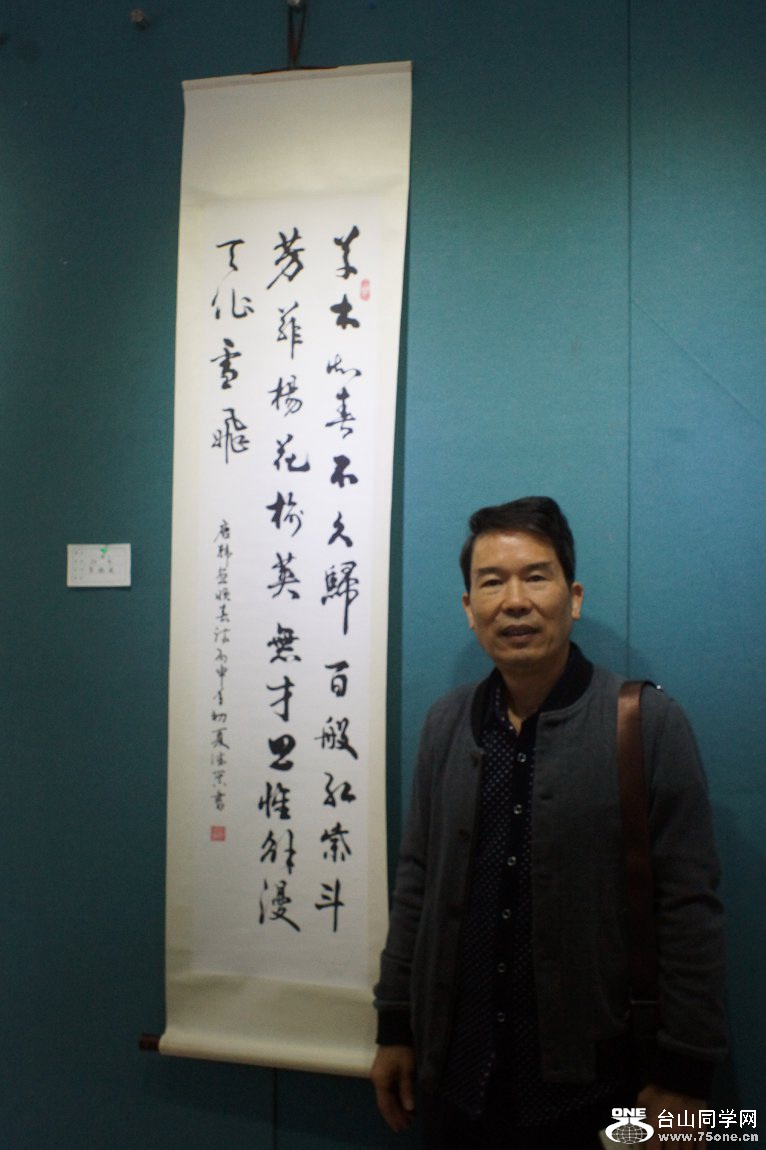 草木知春不久歸百般红紫斗
芳菲楊花榆莢無才思惟解漫
天作雪飛
唐韩愈晚春诗丙申年初夏書
ONE
台山同学网
www.75one.cn